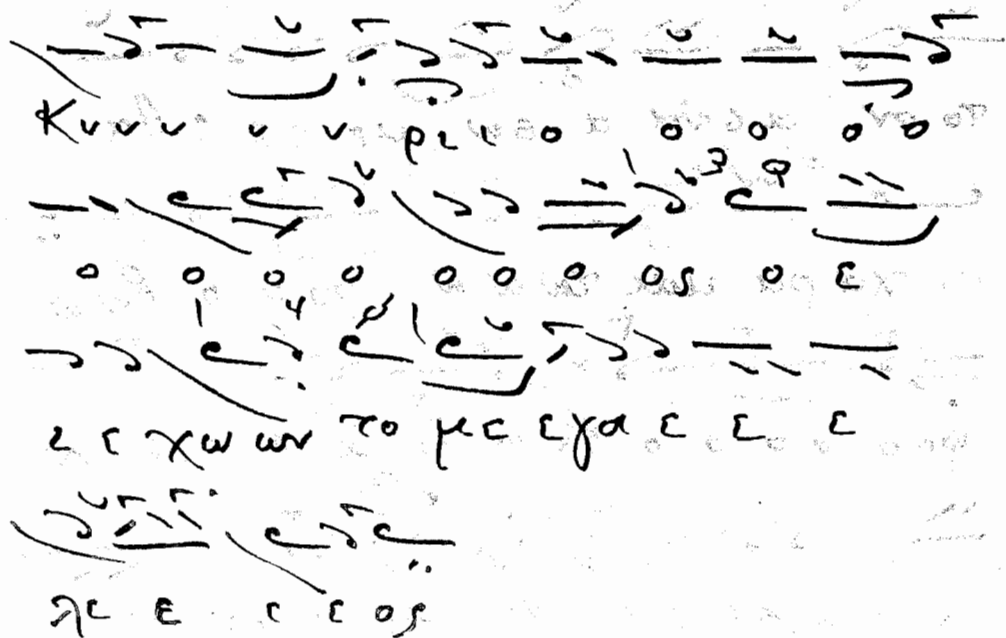 Κυυυ υ υ ρι ι ο ο ο ο ο
ο ο ο ο ο ο ο ος ο ε
ε ε χω ων το με εγα ε ε ε
λε ε ε ε ος